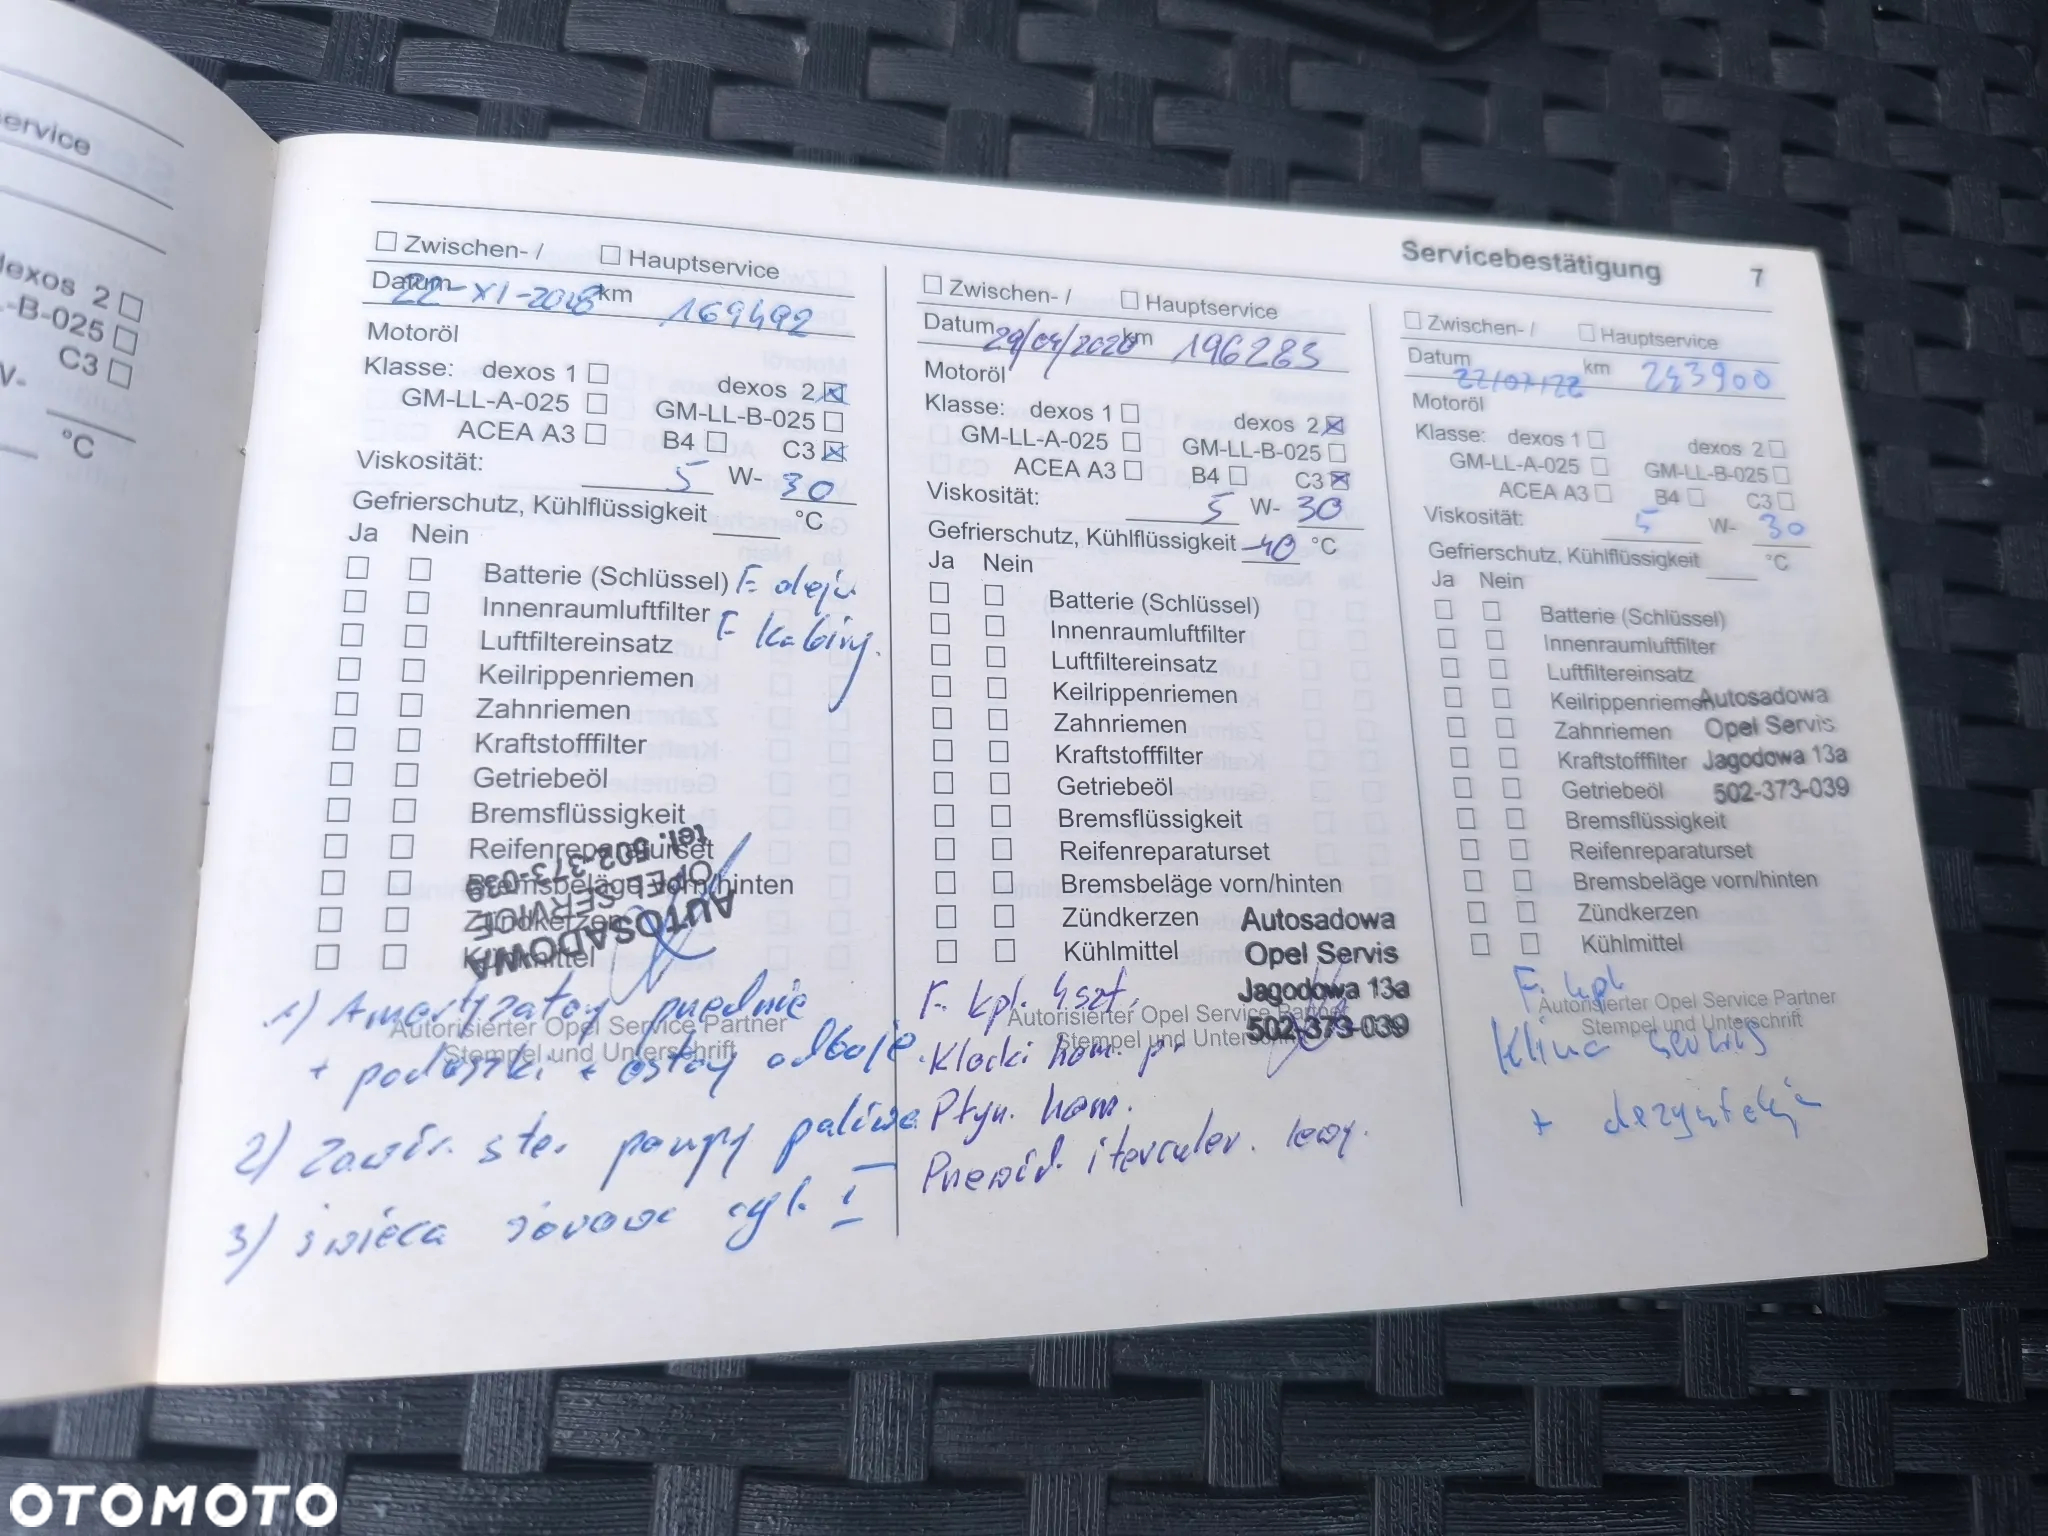 ervice
dexos 2
-B-025
C3
W-
°C
Servicebestätigung 7
Zwischen- / Hauptservice
Datum 22-XI-2018 km 169492
Motoröl
Klasse: dexos 1 dexos 2
GM-LL-A-025 GM-LL-B-025
ACEA A3 B4 C3
Viskosität: 5 W- 30
Gefrierschutz, Kühlflüssigkeit °C
Ja Nein
Batterie (Schlüssel) F.
Innenraumluftfilter F
Luftfiltereinsatz
Keilrippenriemen
Zahnriemen
Kraftstofffilter
Getriebeöl
Bremsflüssigkeit
Reifenreparaturset
Bremsbeläge vorn/hinten
Zündkerzen
Kühlmittel
AUTOSADOWA
OPEL SERVICE
tel. 502-373-039
1) Amortyzatory przednie
Autorisierter Opel Service Partner
Stempel und Unterschrift
+ poduszki + osłony odboje
2) Zawór ste. pompy paliwa
3) świeca żarowa cyl. I
Zwischen- / Hauptservice
Datum 29/04/2020 km 196283
Motoröl
Klasse: dexos 1 dexos 2
GM-LL-A-025 GM-LL-B-025
ACEA A3 B4 C3
Viskosität: 5 W- 30
Gefrierschutz, Kühlflüssigkeit -40 °C
Ja Nein
Batterie (Schlüssel)
Innenraumluftfilter
Luftfiltereinsatz
Keilrippenriemen
Zahnriemen
Kraftstofffilter
Getriebeöl
Bremsflüssigkeit
Reifenreparaturset
Bremsbeläge vorn/hinten
Zündkerzen
Kühlmittel
Autosadowa
Opel Servis
Jagodowa 13a
502-373-039
F. kpl. 4szt.
Autorisierter Opel Service Partner
Stempel und Unterschrift
Klocki ham. pr
Płyn. ham.
Przewód. lewy.
Zwischen- / Hauptservice
Datum 22/07/22 km 243900
Motoröl
Klasse: dexos 1 dexos 2
GM-LL-A-025 GM-LL-B-025
ACEA A3 B4 C3
Viskosität: 5 W- 30
Gefrierschutz, Kühlflüssigkeit °C
Ja Nein
Batterie (Schlüssel)
Innenraumluftfilter
Luftfiltereinsatz
Keilrippenriemen
Zahnriemen
Kraftstofffilter
Getriebeöl
Bremsflüssigkeit
Reifenreparaturset
Bremsbeläge vorn/hinten
Zündkerzen
Kühlmittel
Autosadowa
Opel Servis
Jagodowa 13a
502-373-039
F. kpl
Autorisierter Opel Service Partner
Stempel und Unterschrift
Klima serwis
+
OTOMOTO